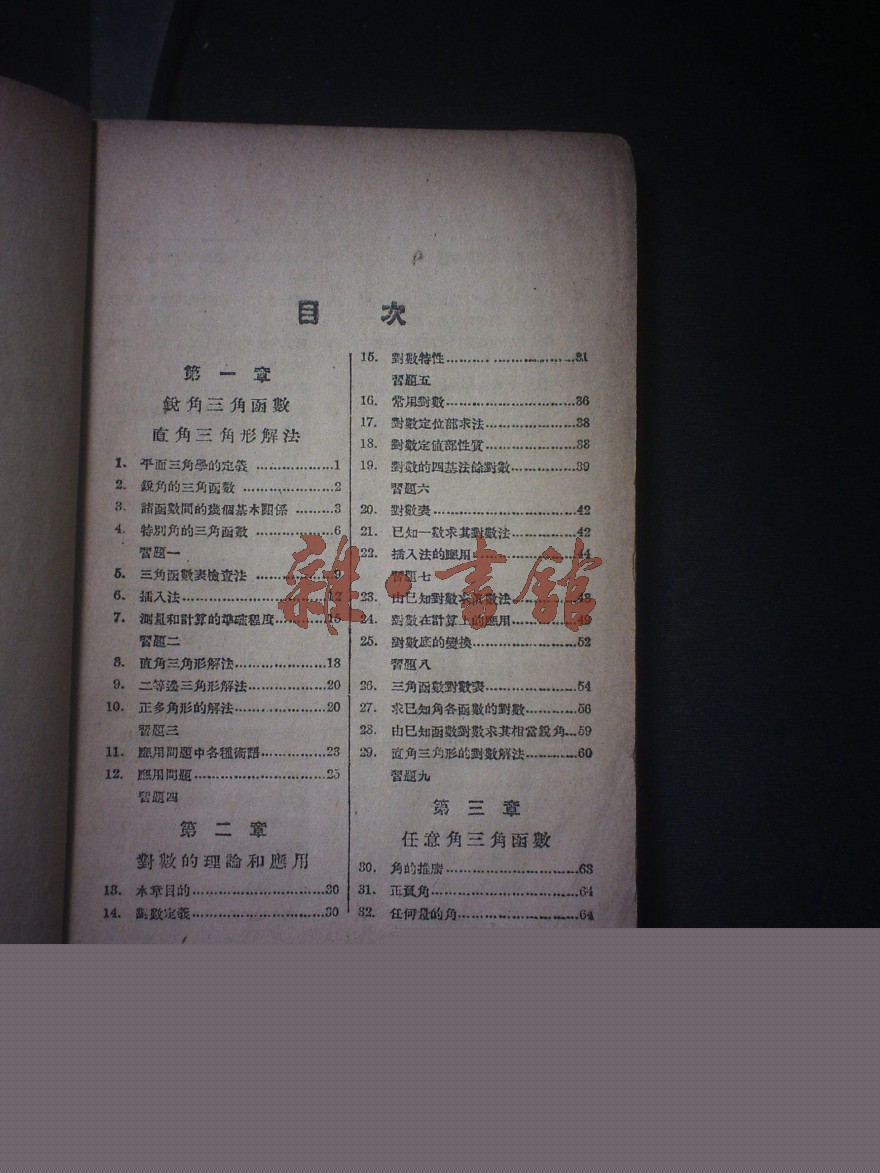 目 次
第 一 章
銳角三角函數
直角三角形解法
1. 平面三角學的定義 ………………1
2. 銳角的三角函數 ………………2
3. 諸函數間的幾個基本關係 ………3
4. 特別角的三角函數 ………………6
習題一
5. 三角函數表檢查法 ………………9
6. 插入法………………………12
7. 測量和計算的準確程度…………15
習題二
8. 直角三角形解法…………………18
9. 二等邊三角形解法………………20
10. 正多角形的解法…………………20
習題三
11. 應用問題中各種術語……………23
12. 應用問題…………………………25
習題四
第 二 章
對數的理論和應用
13. 本章目的…………………………30
14. 對數定義…………………………30
15. 對數特性…………………………31
習題五
16. 常用對數…………………………36
17. 對數定位部求法…………………38
18. 對數定值部性質…………………38
19. 對數的四基法餘對數……………39
習題六
20. 對數表……………………………42
21. 已知一數求其對數法……………42
22. 插入法的應用……………………44
習題七
23. 由已知對數求眞數法……………48
24. 對數在計算上的應用……………49
25. 對數底的變換……………………52
習題八
26. 三角函數對數表…………………54
27. 求已知角各函數的對數…………56
28. 由已知函數對數求其相當銳角…59
29. 直角三角形的對數解法…………60
習題九
第 三 章
任意角三角函數
30. 角的推廣…………………………63
31. 正負角……………………………64
32. 任何量的角………………………64
雜·書館